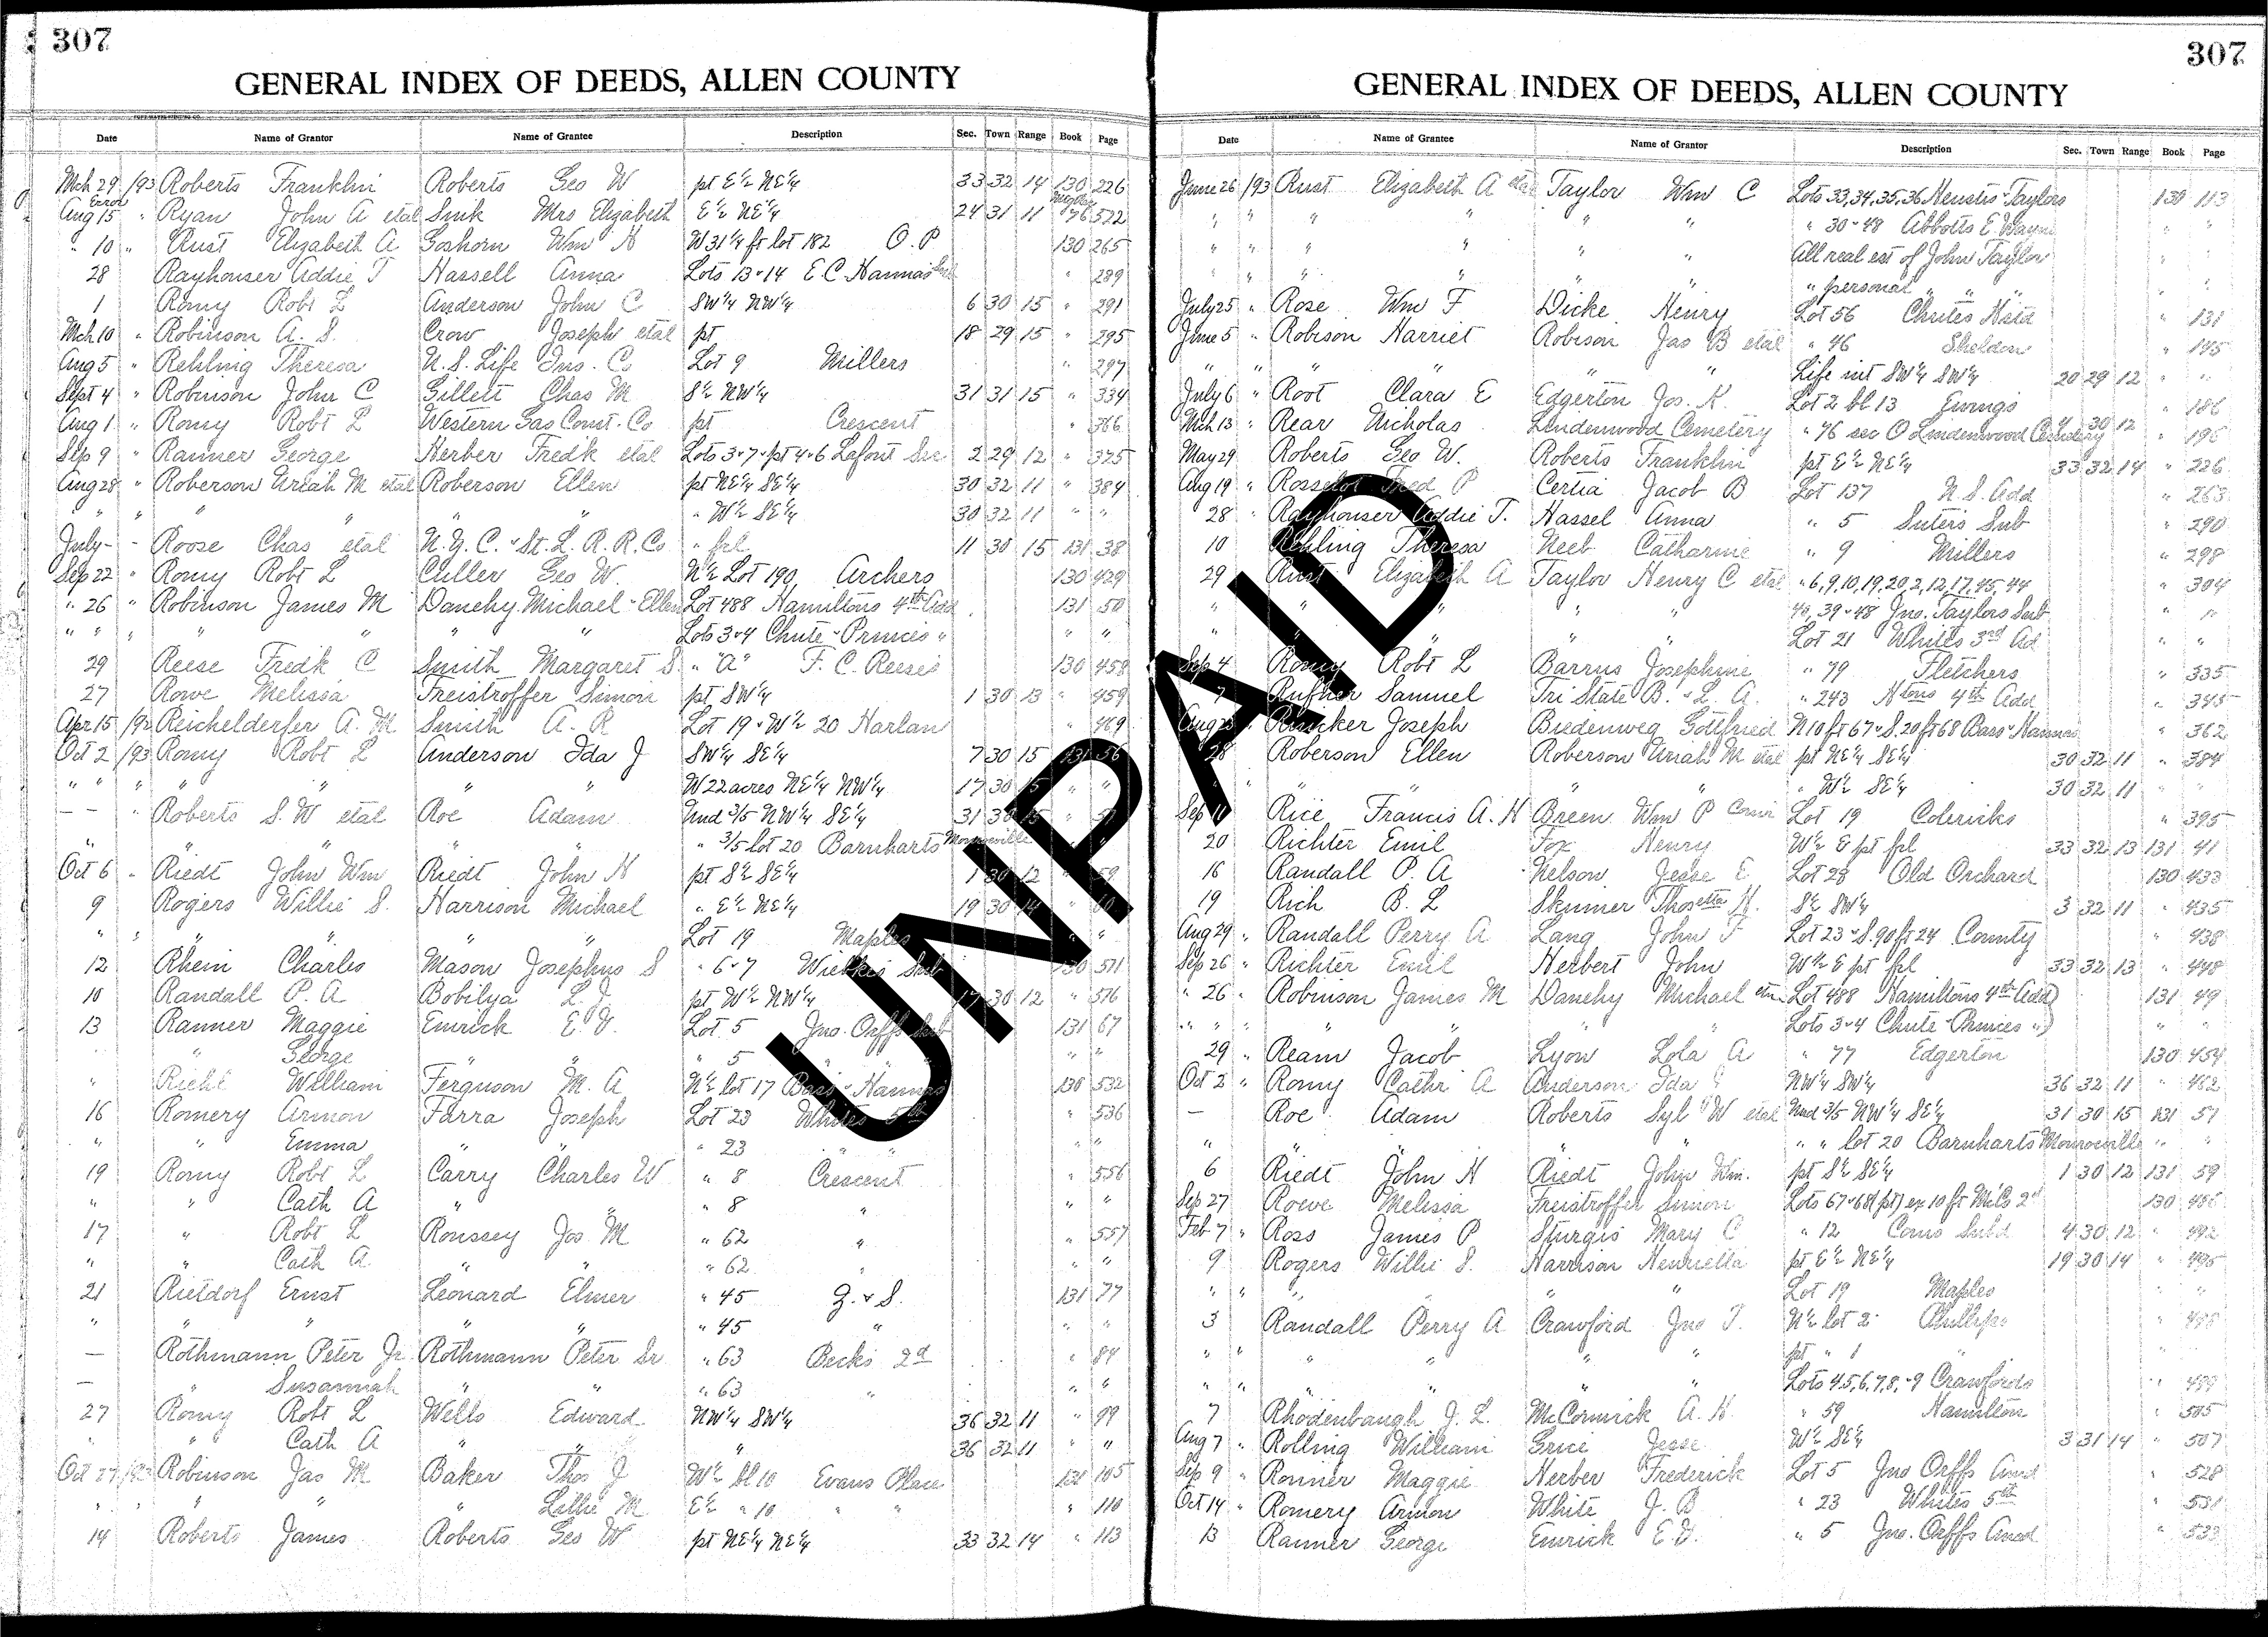 307
GENERAL INDEX OF DEEDS, ALLEN COUNTY
Date Name of Grantor Name of Grantee Description Sec. Town Range Book Page
Mch 29 /93 Roberts Franklin Roberts Geo W pt E½ NE¼ 33 32 14 130 226
Error
Aug 15 " Ryan John A etal Sink Mrs Elizabeth E½ NE¼ 24 31 11 76 522
" 10 " Rust Elizabeth A Goshorn Wm H W 31¼ ft lot 182 O.P 130 265
28 Rayhouser Addie T Hassell Anna Lots 13 & 14 E.C. Hannas Sub " 289
1 Romy Robt L Anderson John C SW¼ NW¼ 6 30 15 " 291
Mch 10 " Robinson A. S. Crow Joseph etal pt 18 29 15 " 295
Aug 5 " Rehling Theresa U.S. Life Ins. Co Lot 9 Millers " 297
Sept 4 " Robinson John C Gillett Chas M S½ NW¼ 31 31 15 " 334
Aug 1 " Romy Robt L Western Gas Const. Co pt Crescent " 366
Sep 9 " Ranner George Herber Fredk etal Lots 3 & 7 & pt 4 & 6 Lafout Sec 2 29 12 " 375
Aug 28 " Roberson Uriah M etal Roberson Ellen pt NE¼ SE¼ 30 32 11 " 384
" " " " " " W½ SE¼ 30 32 11 " "
July - - Roose Chas etal N.Y.C. & St. L. R.R. Co " frl 11 30 15 131 38
Sep 22 " Romy Robt L Culler Geo W. N½ Lot 190 Archers 130 429
" 26 " Robinson James M Danehy Michael & Ellen Lot 488 Hamiltons 4th Add 131 50
" " " " " " " Lots 3 & 4 Chute & Princes " " "
29 Reese Fredk C Smith Margaret S " "A" F.C. Reeses 130 458
27 Rowe Melissa Freistroffer Simon pt SW¼ 1 30 13 " 459
Apr 15 /92 Reichelderfer A. M Smith A. R Lot 19 & W½ 20 Harlan " 469
Oct 2 /93 Romy Robt L Anderson Ida J SW¼ SE¼ 7 30 15 131 56
" " " " " " W 22 acres NE¼ NW¼ 17 30 15 " "
— — " Roberts S. W etal Roe Adam Und 3/5 NW¼ SE¼ 31 30 15 " 57
" " " " 3/5 lot 20 Barnharts Monroeville " "
Oct 6 " Riedt John Wm Riedt John H pt S½ SE¼ 1 30 12 " 59
9 Rogers Willie S. Harrison Michael " E½ NE¼ 19 30 14 " 60
" " " " Lot 19 Maples " "
12 Rhein Charles Mason Josephus S " 6 & 7 Wiebkes Sub 130 511
10 Randall P. A Bobilya L. J. pt W½ NW¼ 17 30 12 " 516
13 Ranner Maggie Emrick E. V. Lot 5 Jno. Orffs Sub 131 67
" George " " " 5 " " "
" Riehl William Ferguson M. A N½ lot 17 Bass & Hannas 130 532
16 Romery Armon Farra Joseph Lot 23 Whites 5th " 536
" " Emma " " " 23 " " "
19 Romy Robt L Carry Charles W " 8 Crescent " 556
" " Cath A " " " 8 " " "
17 " Robt L Roussey Jos M " 62 " " 557
" " Cath A " " " 62 " " "
21 Rietdorf Ernst Leonard Elmer " 45 G. & S. 131 77
" " " " " " 45 " " "
— Rothmann Peter Jr Rothmann Peter Sr " 63 Becks 2d " 84
— " Susannah " " " 63 " " "
27 Romy Robt L Wells Edward NW¼ SW¼ 36 32 11 " 99
" " Cath A " " " 36 32 11 " "
Oct 27 /93 Robinson Jas M Baker Thos J W½ bl 10 Evans Place 131 105
" " " " " Lillie M E½ " 10 " " " 110
14 Roberts James Roberts Geo W pt NE¼ NE¼ 33 32 14 " 113
307
GENERAL INDEX OF DEEDS, ALLEN COUNTY
Date Name of Grantee Name of Grantor Description Sec. Town Range Book Page
June 26 /93 Rust Elizabeth A etal Taylor Wm C Lots 33, 34, 35, 36 Neustis & Taylors 130 113
" " " " " " " " 30 & 48 Abbotts E. Wayne " "
" " " " " " " All real est of John Taylor " "
" " " " " " " " personal " " "
July 25 " Rose Wm F Dicke Henry Lot 56 Chutes Hstd " 131
June 5 " Robison Harriet Robison Jas B etal " 46 Shelden " 145
" " " " " " Life int SW¼ SW¼ 20 29 12 " "
July 6 " Root Clara E Edgerton Jos. K. Lot 2 bl 13 Ewings " 186
Mch 13 " Rear Nicholas Lindenwood Cemetery " 76 sec O Lindenwood Cemetery 4 30 12 " 196
May 29 Roberts Geo W. Roberts Franklin pt E½ NE¼ 33 32 14 " 226
Aug 19 " Rosselot Fred P Certia Jacob B Lot 137 N.S. Add " 263
28 " Rayhouser Addie T. Hassel Anna " 5 Suters Sub " 290
10 Rehling Theresa Neeb Catharine " 9 Millers " 298
29 Rust Elizabeth A Taylor Henry C etal " 6, 9, 10, 19, 20, 2, 12, 17, 45, 44 " 304
" " " " " 40, 39 & 48 Jno. Taylors Sub " "
" " " " " Lot 21 Whites 3rd Ad " "
Sep 4 Romy Robt L Barrus Josephine " 79 Fletchers " 335
7 Rufner Samuel Tri State B. & L. A. " 243 Htons 4th Add " 345
Aug 23 " Joseph Biedenweg Gottfried N 10 ft 67 & S. 20 ft 68 Bass & Hannas " 362
28 Roberson Ellen Roberson Uriah M etal pt NE¼ SE¼ 30 32 11 " 384
" " " W½ SE¼ 30 32 11 " "
Sep 11 Rice Francis A. H Breen Wm P Comr Lot 19 Colericks " 395
20 Richter Emil Fox Henry W½ E pt frl 33 32 13 131 41
16 Randall P. A Nelson Jesse E Lot 28 Old Orchard 130 433
19 Rich B. L Skinner Thos etta H. S½ SW¼ 3 32 11 " 435
Aug 29 " Randall Perry A Lang John F Lot 23 & S. 90 ft 24 County " 438
Sep 26 " Richter Emil Herbert John W½ E pt frl 33 32 13 " 448
" 26 " Robinson James M Danehy Michael etux Lot 488 Hamiltons 4th Add 131 49
" " " " " " Lots 3 & 4 Chute & Princes " " "
29 " Ream Jacob Lyon Lola A " 77 Edgerton 130 454
Oct 2 " Romy Cathr A Anderson Ida J NW¼ SW¼ 36 32 11 " 462
— Roe Adam Roberts Syl W etal Und 3/5 NW¼ SE¼ 31 30 15 131 57
" " " " " " " lot 20 Barnharts Monroeville " "
6 Riedt John H Riedt John Wm. pt S½ SE¼ 1 30 12 131 59
Sep 27 Rowe Melissa Freistroffer Simon Lots 67 & 68 (pt) ex 10 ft McCs 2d 130 486
Feb 7 " Ross James P Sturgis Mary C " 12 Coms Subd 4 30 12 " 492
9 Rogers Willie S. Harrison Henrietta pt E½ NE¼ 19 30 14 " 495
" " " " Lot 19 Maples " "
3 Randall Perry A Crawford Jno T. N½ lot 2 Phillips " 498
" " " " " " pt " 1 " " "
" " " " " " Lots 4, 5, 6, 7, 8, & 9 Crawfords " 499
7 Rhodenbaugh J. L. McCormick A. H. " 59 Hamilton " 505
Aug 7 " Rolling William Grice Jesse W½ SE¼ 3 31 14 " 507
Sep 9 " Ronner Maggie Herber Frederick Lot 5 Jno Orffs Amd " 528
Oct 14 " Romery Armon White J. B " 23 Whites 5th " 531
13 Ranner George Emrick E. V. " 5 Jno. Orffs Amd " 533
UNPAID